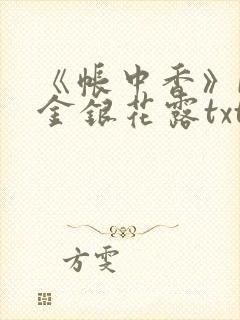 《帳中香》
金銀花露txt
方雯